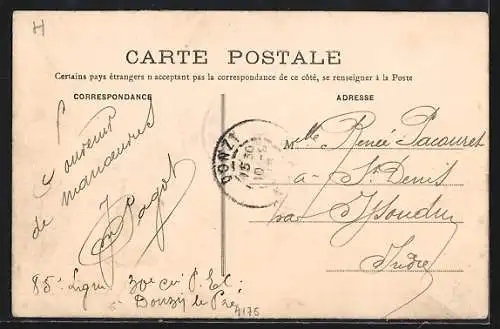 H
CARTE POSTALE
Certains pays étrangers n acceptant pas la correspondance de ce côté, se renseigner à la Poste
CORRESPONDANCE
Souvenir
de manœuvres
Pagot
85e Ligne 30e Cie P. El.
à Donzy le Pré
4175
DONZY
15 30
ADRESSE
Mlle Renée Pacouret
à St Denis
par Issoudun
Indre